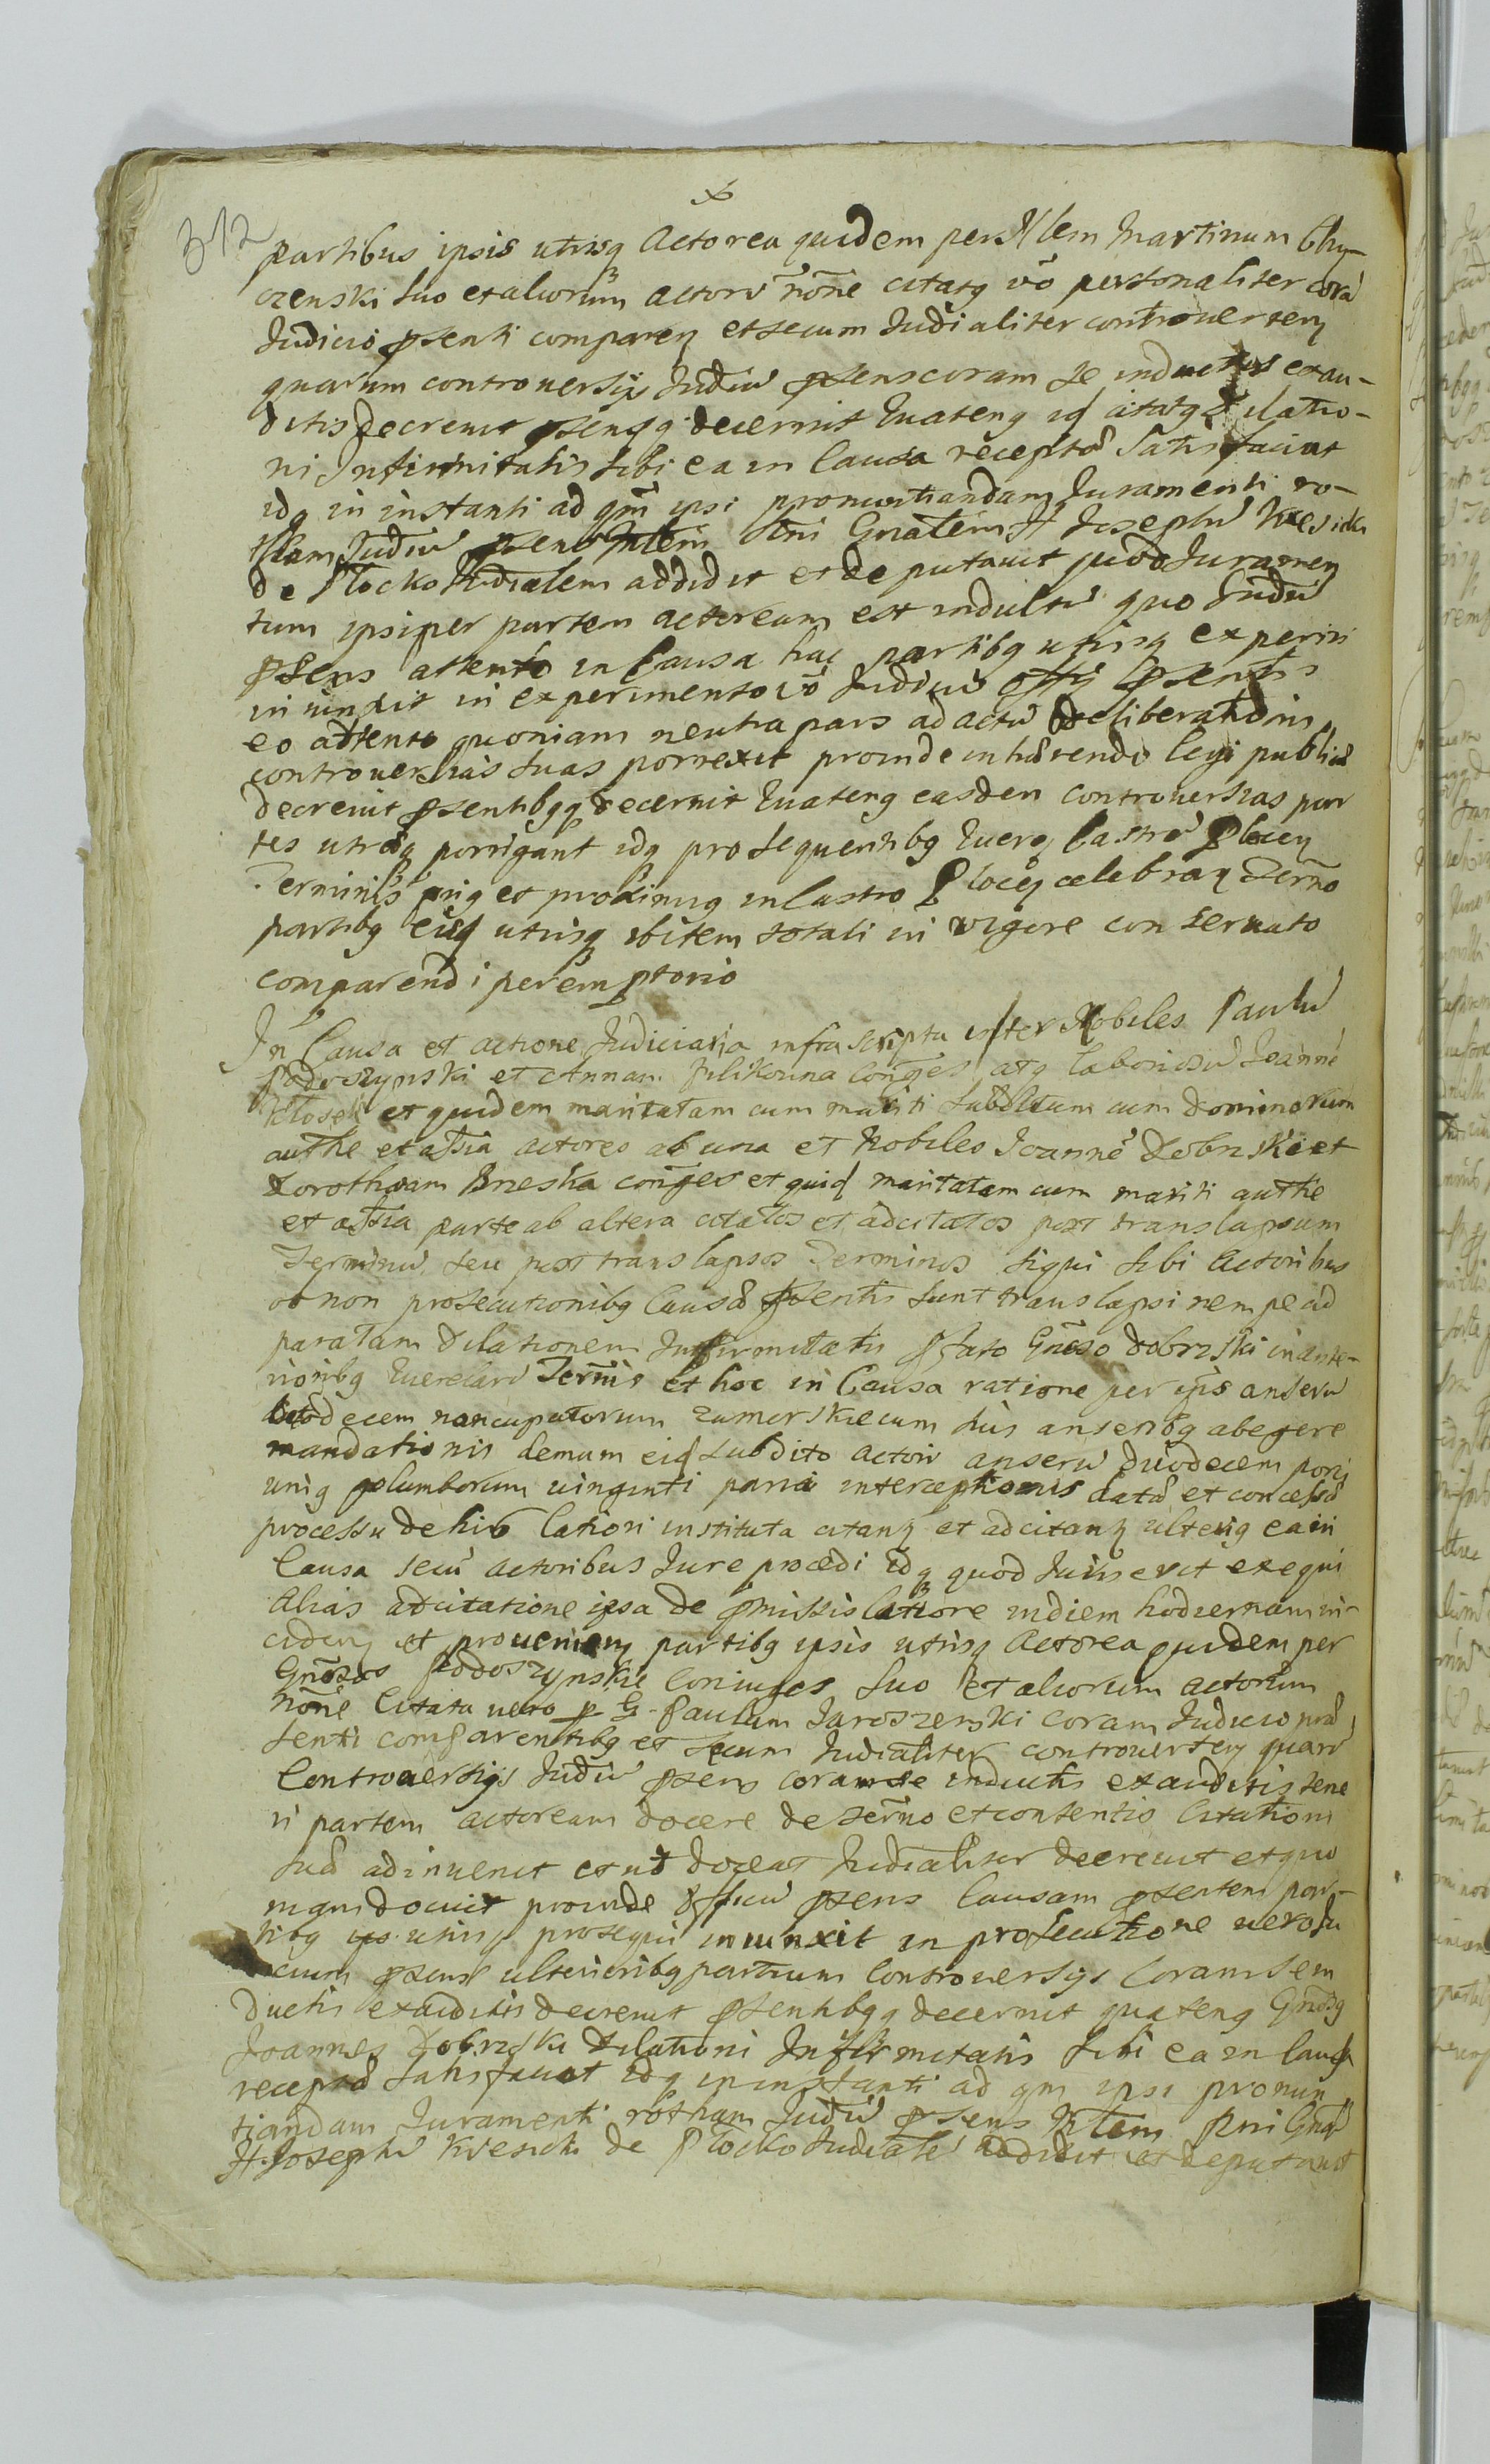 312
partibus ipsis utrisq Actorea quidem per Nlem Martinum Chy-
czenski suo et aliorum actorū nōne citatq vō personaliter corā
Judicio psenti comparen et secum Judialiter controuerten
quarum controuersijs Judiū psens coram se inductis exau-
ditis decreuit psensq decernit quateng id citatq dilatio-
ni Infirmitatis sibi ea in Causa recepta satisfaciat
idq in instanti ad qm ipsi pronuntiandam Juramenti ro-
tham Judiū psens Mlem Gnalem H Josephū Kresicki
de Plocko Judialem addidit et deputauit quod Juramen
tum ipsi per partem actoream est indultū quo Judiū
psens attento in Causa hac partibq utrisq experiri
iniunxit in experimento vō Judiciū offij psentis
eo attento quoniam neutra pars ad actū deliberationis
controuersias suas porrexit proinde inhærendo legi publica
decreuit psentibqq decernit quateng easdem controuersias par
tes utræq porrigant idq pro sequentibq querel Castri Plocen
Terminis priq et proximiq in Castro Plocen celebran Termo
partibq eisd utrisq ibitem totali in vigore conseruato
comparendi peremptorio
In Causa et actione Judiciaria infrascripta inter Nobiles Paulū
Podoszynski et Annam Filikowna conges atq laboriosū Joannē
Klosek et quidem maritatam cum mariti subditum cum dominorum
authe et assia actores ab una et Nobiles Joannē Dobrski et
Dorotheam Brzeska conges et quid maritatam cum mariti authe
et assia parte ab altera citatos et adcitatos post translapsum
Terminū seu post translapsos Terminos siqui sibi Actoribus
ob non prosecutionibq Causa psentis sunt translapsi nempe ad
paratam dilationem Infirmitatis pfato Gnoso Dobrski in ante-
rioribq Querelarū Termis et hoc in Causa ratione per ipsos anserū
duodecem nancupatorum zamorskie cum suis anseribq abegere
mandationis demum eid subdito actori anserū duodecem porci
uniq columborum uinginti paria interceptionis data et concessa
processu de his latiori instituta citan et adcitan ulteriq ea in
Causa secū actoribus Jure procedi idq quod Juris erit exequi
Alias adcitatione ipsa de pmissis latiore in diem hodiernam in-
ciden et prouenien partibq ipsis utrisq Actorea quidem per
Gnosos Podoszynskie Coniuges suo et aliorum actorum
nōne Citata vero p G. Paulum Jaroszewski coram Judicio præ
senti comparentibq et secum Judialiter controuerten quarū
Controuersijs Judiū psens coram se inductis exauditis tene
ri partem actoream docere de termo et contentis Citationi
sua adinuenit et ut doceat Judialiter decreuit et quo
niam docuit proinde Officiū psens Causam psentem par-
tibq ips utrisq prosequi iniunxit in prosecutione vero Ju
dicium psens ulterioribq partium Controuersijs coram se in
ductis exauditis decreuit psentibqq decernit quateng Gnosq
Joannes Dobrski dilationi Infirmitatis sibi ea in Causa
recepta satisfaciat idq in instanti ad qm ipsi pronun
tiandam Juramenti rotham Judiū psens Mlem
H Josephū Kresicki de Plocko Judialē addidit et deputauit